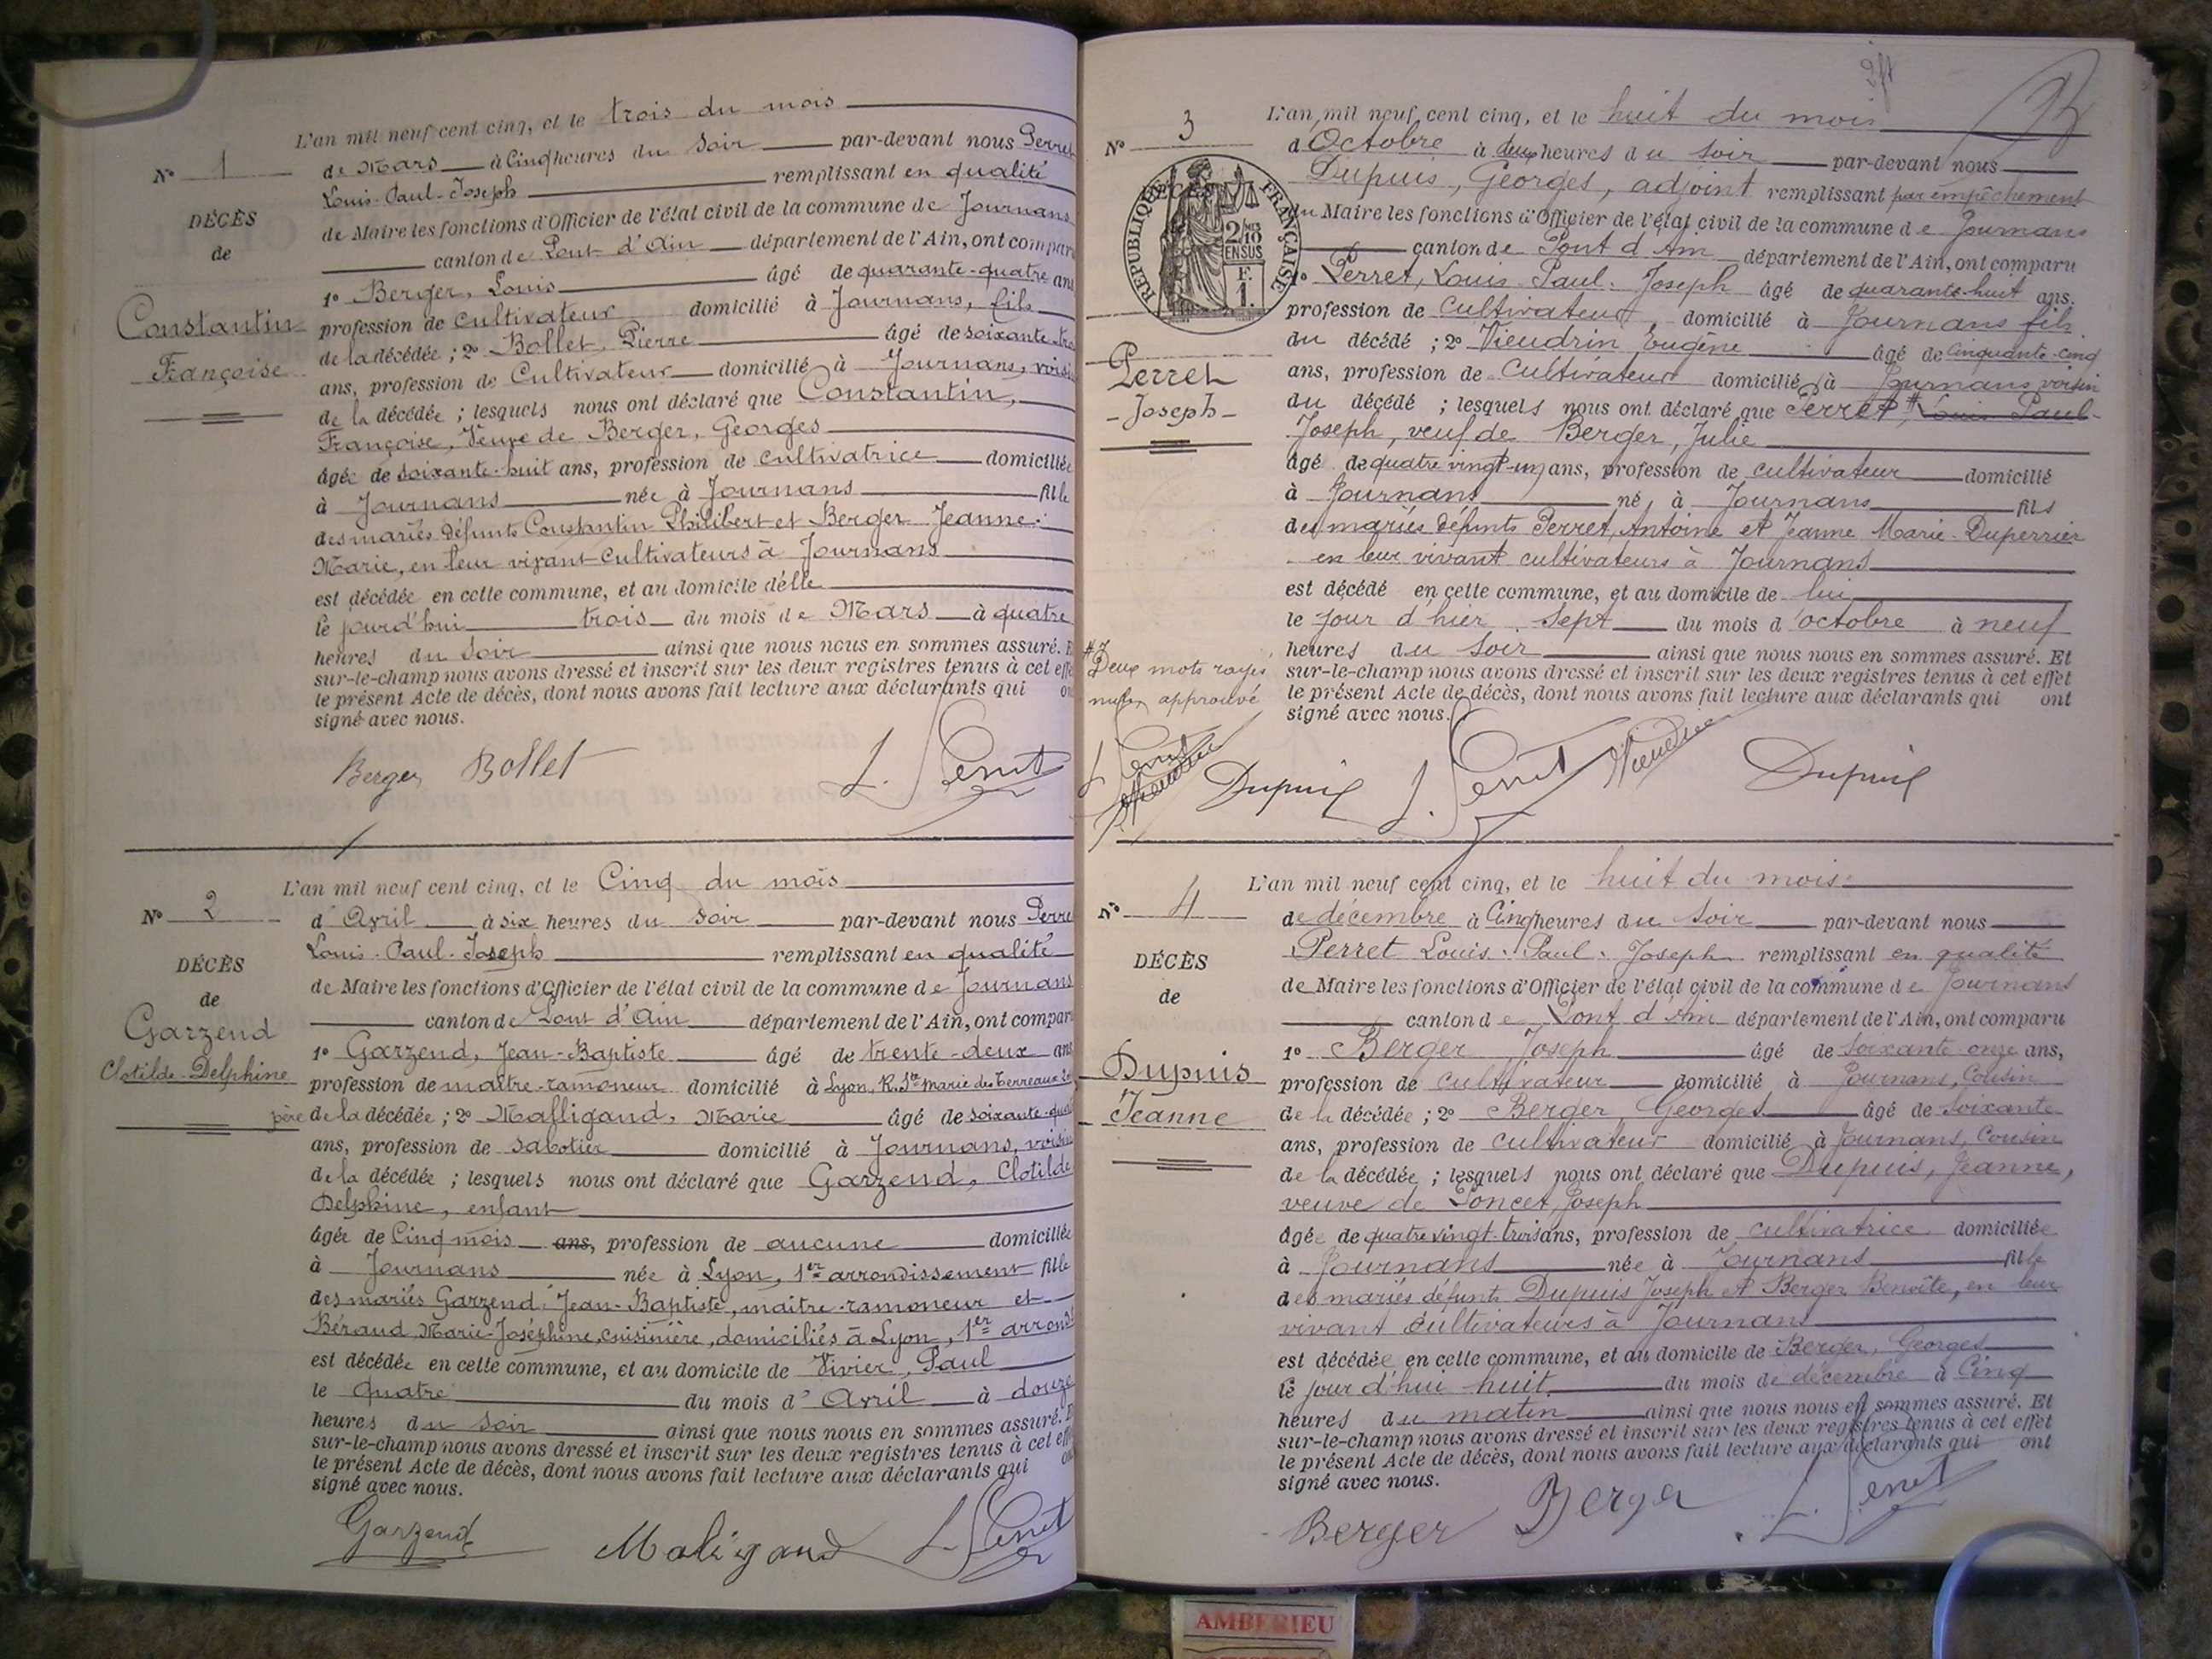 L'an mil neuf cent cinq, et le trois du mois
N° 1 de Mars à Cinq heures du Soir par-devant nous Perret
Louis-Paul-Joseph remplissant en qualité
DÉCÈS
de Maire les fonctions d'Officier de l'état civil de la commune de Journans
de
canton de Pont d'Ain département de l'Ain, ont compar
1° Berger, Louis âgé de quarante-quatre ans
Constantin
profession de Cultivateur domicilié à Journans, fils
Françoise
de la décédée ; 2° Bollet, Pierre âgé de soixante-tro
ans, profession de Cultivateur domicilié à Journans, voisin
de la décédée ; lesquels nous ont déclaré que Constantin,
Françoise, Veuve de Berger, Georges
âgée de soixante-huit ans, profession de cultivatrice domiciliée
à Journans née à Journans fille
des mariés défunts Constantin Philibert et Berger Jeanne-
Marie, en leur vivant cultivateurs à Journans
est décédée en cette commune, et au domicile d'elle
le jourd'hui trois du mois de Mars à quatre
heures du Soir ainsi que nous nous en sommes assuré. E
sur-le-champ nous avons dressé et inscrit sur les deux registres tenus à cet effe
le présent Acte de décès, dont nous avons fait lecture aux déclarants qui on
signé avec nous.
Berger Bollet L. Perret
L'an mil neuf cent cinq, et le Cinq du mois
N° 2 d'Avril à six heures du Soir par-devant nous Perre
Louis-Paul-Joseph remplissant en qualité
DÉCÈS
de Maire les fonctions d'Officier de l'état civil de la commune de Journans
de
canton de Pont d'Ain département de l'Ain, ont compar
Garzend
1° Garzend, Jean-Baptiste âgé de trente-deux ans
Clotilde-Delphine
profession de maître-ramoneur domicilié à Lyon, R. Ste Marie des Terreaux
père de la décédée ; 2° Malligand, Marie âgé de soixante-quat
ans, profession de sabotier domicilié à Journans, voisin
de la décédée ; lesquels nous ont déclaré que Garzend, Clotilde
Delphine, enfant
âgée de Cinq mois ans, profession de aucune domiciliée
à Journans née à Lyon, 1er arrondissement fille
des mariés Garzend, Jean-Baptiste, maître-ramoneur et
Béraud, Marie-Joséphine, cuisinière, domiciliés à Lyon, 1er arrondt
est décédée en cette commune, et au domicile de Vivier, Paul
le quatre du mois d'Avril à douze
heures du Soir ainsi que nous nous en sommes assuré. E
sur-le-champ nous avons dressé et inscrit sur les deux registres tenus à cet effe
le présent Acte de décès, dont nous avons fait lecture aux déclarants qui on
signé avec nous.
Garzend Maligand L. Perret
L'an mil neuf cent cinq, et le huit du mois
N° 3 d'Octobre à deux heures du Soir par-devant nous
Dupuis, Georges, adjoint remplissant par empêchement
RÉPUBLIQUE FRANÇAISE
2/10 EN SUS
F. 1.
du Maire les fonctions d'Officier de l'état civil de la commune de Journans
canton de Pont d'Ain département de l'Ain, ont comparu
1° Perret, Louis-Paul-Joseph âgé de quarante-huit ans,
profession de Cultivateur, domicilié à Journans fils
du décédé ; 2° Vieudrin Eugène âgé de cinquante-cinq
Perret
Joseph
ans, profession de Cultivateur domicilié à Journans voisin
du décédé ; lesquels nous ont déclaré que Perret, # Louis Paul
Joseph, veuf de Berger, Julie
âgé de quatre vingt-un ans, profession de cultivateur domicilié
à Journans né à Journans fils
des mariés défunts Perret, Antoine et Jeanne Marie Duperrier
en leur vivant cultivateurs à Journans
est décédé en cette commune, et au domicile de lui
le jour d'hier Sept du mois d'octobre à neuf
heures du Soir ainsi que nous nous en sommes assuré. Et
# Deux mots rayés
nuls approuvé
sur-le-champ nous avons dressé et inscrit sur les deux registres tenus à cet effet
le présent Acte de décès, dont nous avons fait lecture aux déclarants qui ont
signé avec nous.
L. Perret Vieudrin Dupuis L. Perret Vieudrin Dupuis
L'an mil neuf cent cinq, et le huit du mois
N° 4 de décembre à Cinq heures du Soir par-devant nous
Perret Louis-Paul-Joseph remplissant en qualité
DÉCÈS
de Maire les fonctions d'Officier de l'état civil de la commune de Journans
de
canton de Pont d'Ain département de l'Ain, ont comparu
1° Berger Joseph âgé de soixante onze ans,
Dupuis
Jeanne
profession de Cultivateur domicilié à Journans, Cousin
de la décédée ; 2° Berger, Georges âgé de soixante
ans, profession de Cultivateur domicilié à Journans, Cousin
de la décédée ; lesquels nous ont déclaré que Dupuis, Jeanne,
veuve de Poncet, Joseph
âgée de quatre vingt-trois ans, profession de cultivatrice domiciliée
à Journans née à Journans fille
des mariés défunts Dupuis Joseph et Berger Benoîte, en leur
vivant Cultivateurs à Journans
est décédée en cette commune, et au domicile de Berger, Georges
le jour d'hui huit du mois de décembre à Cinq
heures du matin ainsi que nous nous en sommes assuré. Et
sur-le-champ nous avons dressé et inscrit sur les deux registres tenus à cet effet
le présent Acte de décès, dont nous avons fait lecture aux déclarants qui ont
signé avec nous.
Berger Berger L. Perret
AMBERIEU